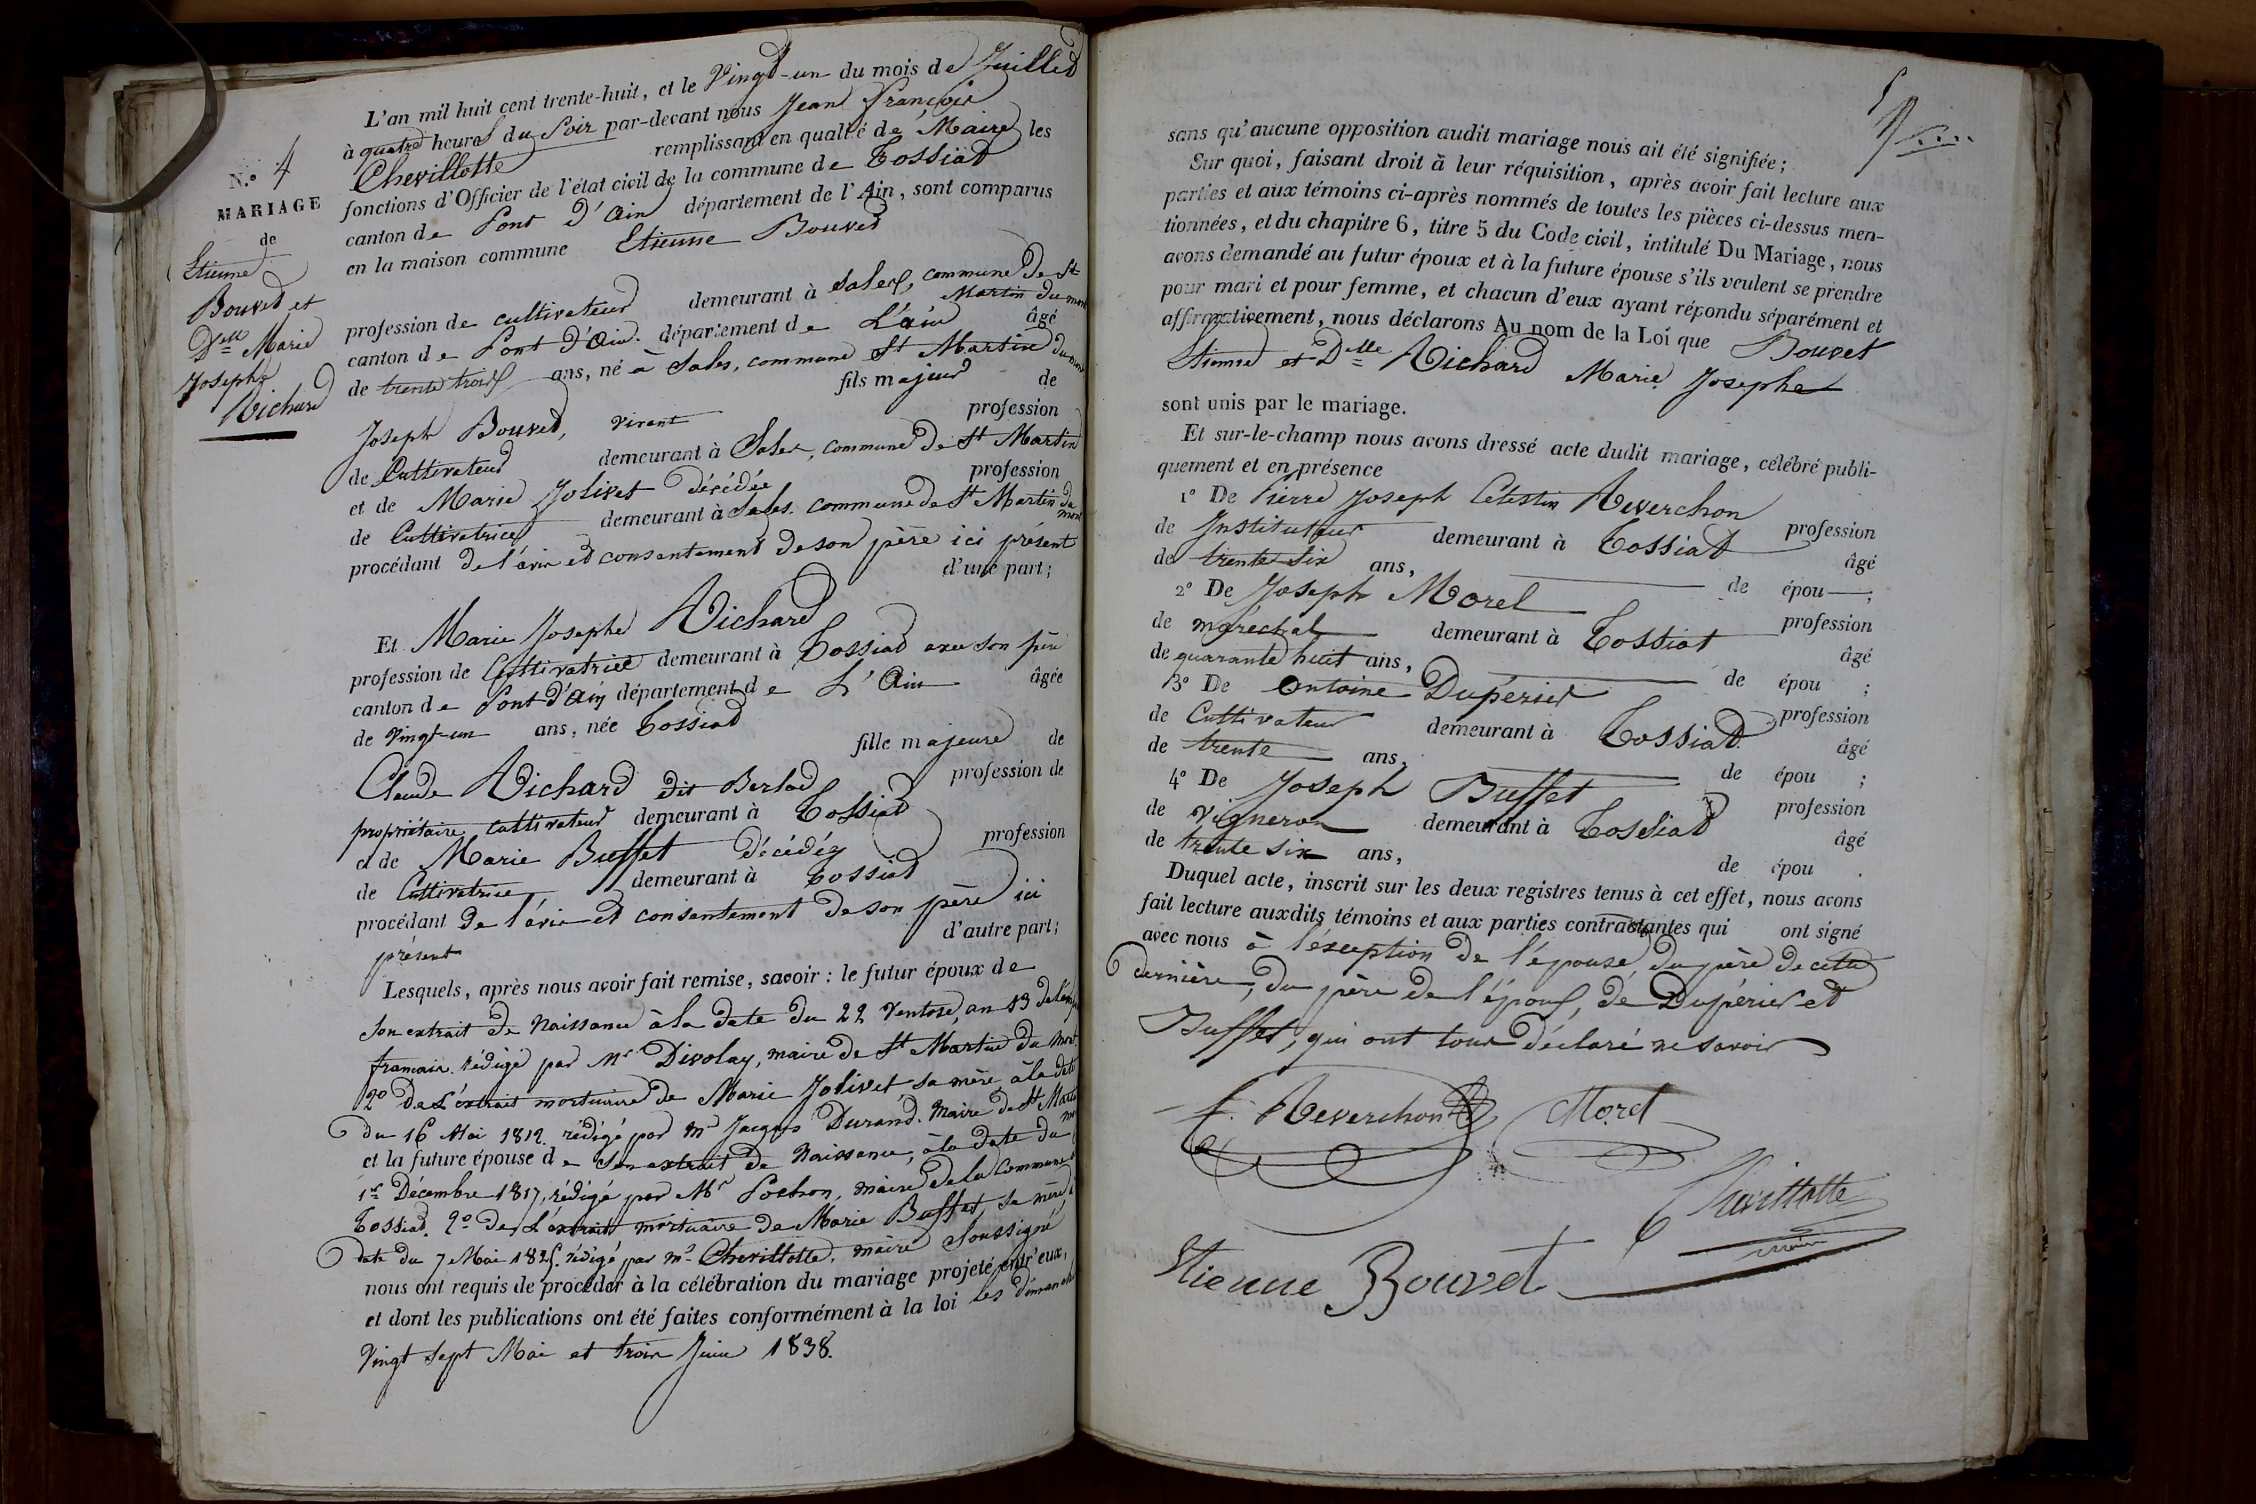 N.° 4
MARIAGE
de
Etienne
Bouvet et
Delle Marie
Josephe
Richard
L'an mil huit cent trente-huit, et le Vingt-un du mois de Juillet
à quatre heures du Soir par-devant nous Jean François
Chevillotte remplissant en qualité de Maire les
fonctions d'Officier de l'état civil de la commune de Tossiat
canton de Pont d'ain département de l'Ain, sont comparus
en la maison commune Etienne Bouvet
profession de cultivateur demeurant à Sales, commune de St Martin du mont
canton de Pont d'Ain département de L'ain âgé
de trente trois ans, né à Sales, commune St Martin du mont
fils majeur de
Joseph Bouvet, vivant profession
de Cultivateur demeurant à Sales, commune de St Martin
et de Marie Jolivet décédée profession
de Cultivatrice demeurant à Sales commune de St Martin du mont
procédant de l'avis et consentement de son père ici présent
d'une part;
Et Marie Josephe Richard
profession de Cultivatrice demeurant à Tossiat avec son père
canton de Pont d'Ain département de L'Ain âgée
de Vingt-un ans, née Tossiat
fille majeure de
Claude Richard dit Berlod profession de
propriétaire cultivateur demeurant à Tossiat
et de Marie Buffet décédée profession
de Cultivatrice demeurant à Tossiat
procédant de l'avis et consentement de son père ici
présent d'autre part;
Lesquels, après nous avoir fait remise, savoir : le futur époux de
son extrait de Naissance à la date du 22 Ventose an 13 de l'ère
francais rédigé par Mr Divolay, maire de St Martin du Mont
2° De L'extrait mortuaire de Marie Jolivet sa mère, à la date
du 16 Mai 1812 rédigé par Mr Jacques Durand Maire de St Martin
et la future épouse de son extrait de Naissance, à la date du
1er Décembre 1817, rédigé par Mr Pochon, maire de la Commune
Tossiat 2° de L'extrait mortuaire de Marie Buffet, sa mère
date du 7 Mai 1825 rédigé par Mr Chevillotte, maire soussigné
nous ont requis de procéder à la célébration du mariage projeté entr'eux,
et dont les publications ont été faites conformément à la loi les dimanches
Vingt sept Mai et trois Juin 1838.
sans qu'aucune opposition audit mariage nous ait été signifiée;
Sur quoi, faisant droit à leur réquisition, après avoir fait lecture aux
parties et aux témoins ci-après nommés de toutes les pièces ci-dessus men-
tionnées, et du chapitre 6, titre 5 du Code civil, intitulé Du Mariage, nous
avons demandé au futur époux et à la future épouse s'ils veulent se prendre
pour mari et pour femme, et chacun d'eux ayant répondu séparément et
affirmativement, nous déclarons Au nom de la Loi que Bouvet
Etienne et Delle Richard Marie Josephe
sont unis par le mariage.
Et sur-le-champ nous avons dressé acte dudit mariage, célébré publi-
quement et en présence
1° De Pierre Joseph Célestin Reverchon profession
de Instituteur demeurant à Tossiat âgé
de trente six ans, de épou ;
2° De Joseph Morel profession
de maréchal demeurant à Tossiat âgé
de quarante huit ans, de épou ;
3° De Antoine Dupérier profession
de Cultivateur demeurant à Tossiat âgé
de trente ans, de épou ;
4° De Joseph Buffet profession
de Vigneron demeurant à Tossiat âgé
de trente six ans, de épou .
Duquel acte, inscrit sur les deux registres tenus à cet effet, nous avons
fait lecture auxdits témoins et aux parties contractantes qui ont signé
avec nous à l'exception de l'épouse, du père de cette
dernière, du père de l'époux, de Dupérier et
Buffet, qui ont tous déclaré ne savoir
Reverchon Morel
Chevillotte
maire
Etienne Bouvet